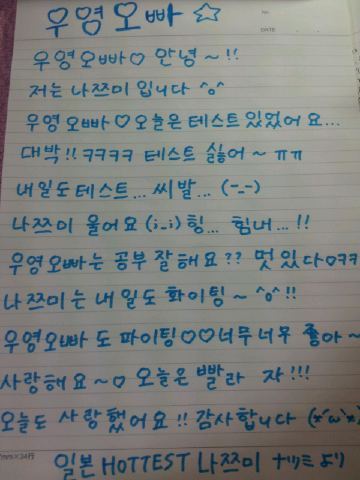 우영오빠☆
우영오빠♡ 안녕~!!
저는 나쯔미 입니다 ^o^
우영오빠♡오늘은 테스트 있었어요...
대박!! ㅋㅋㅋㅋ 테스트 싫어~ㅠㅠ
내일도 테스트... 씨발... (-_-)
나쯔미 울어요 (i_i) 힝... 힘내...!!
우영오빠는 공부 잘해요?? 멋있다ㅇㅋㅋ
나쯔미는 내일도 화이팅~ ^o^!!
우영오빠도 파이팅♡♡너무너무 좋아~
사랑해요~♡ 오늘은 빨라 자!!!
오늘도 사랑했어요!! 감사합니다 (x'ω'x)
일본 HOTTEST 나쯔미 ナツミ より
DATE
No.
7mm×24行